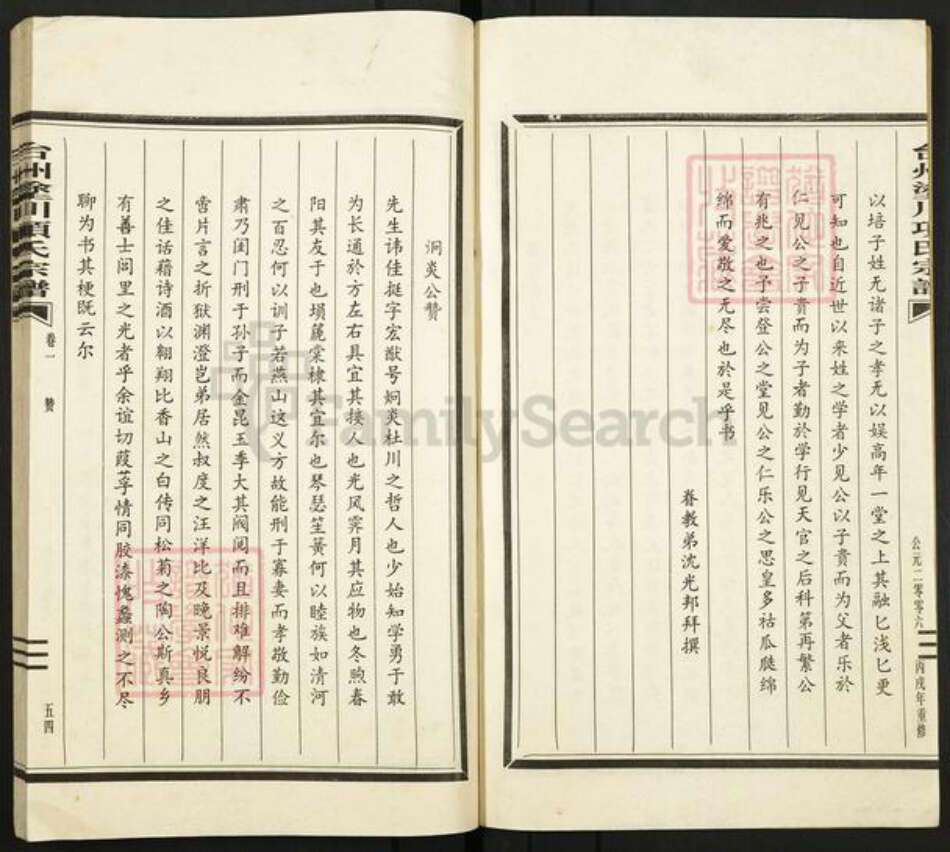 以培子姓无诸子之孝无以娱高年一堂之上其融匕浅匕更
可知也自近世以来姓之学者少见公以子贵而为父者乐於
仁见公之子贵而为子者勤於学行见天官之后科第再繁公
有兆之也予尝登公之堂见公之仁乐公之思皇多祜瓜瓞绵
绵而爱敬之无尽也於是乎书
眷教弟沈光邦拜撰
公元二零零六
丙戌年重修
泂炎公赞
先生讳佳挺字宏猷号炯炎杜川之哲人也少始知学勇于敢
为长通於方左右具宜其接人也光风霁月其应物也冬煦春
阳其友于也埙篪棠棣其宜尔也琴瑟笙簧何以睦族如清河
之百忍何以训子若燕山这义方故能刑于寡妻而孝敬勤俭
肃乃闺门刑于孙子而金昆玉季大其阀阅而且排难解纷不
啻片言之折狱渊澄岂弟居然叔度之汪洋比及晚景悦良朋
之佳话藉诗酒以翱翔比香山之白传同松菊之陶公斯真乡
有善士闾里之光者乎余谊切葭莩情同胶漆愧蠡测之不尽
聊为书其梗既云尔
台州涂川项氏宗谱
卷一
赞
五四
FamilySearch